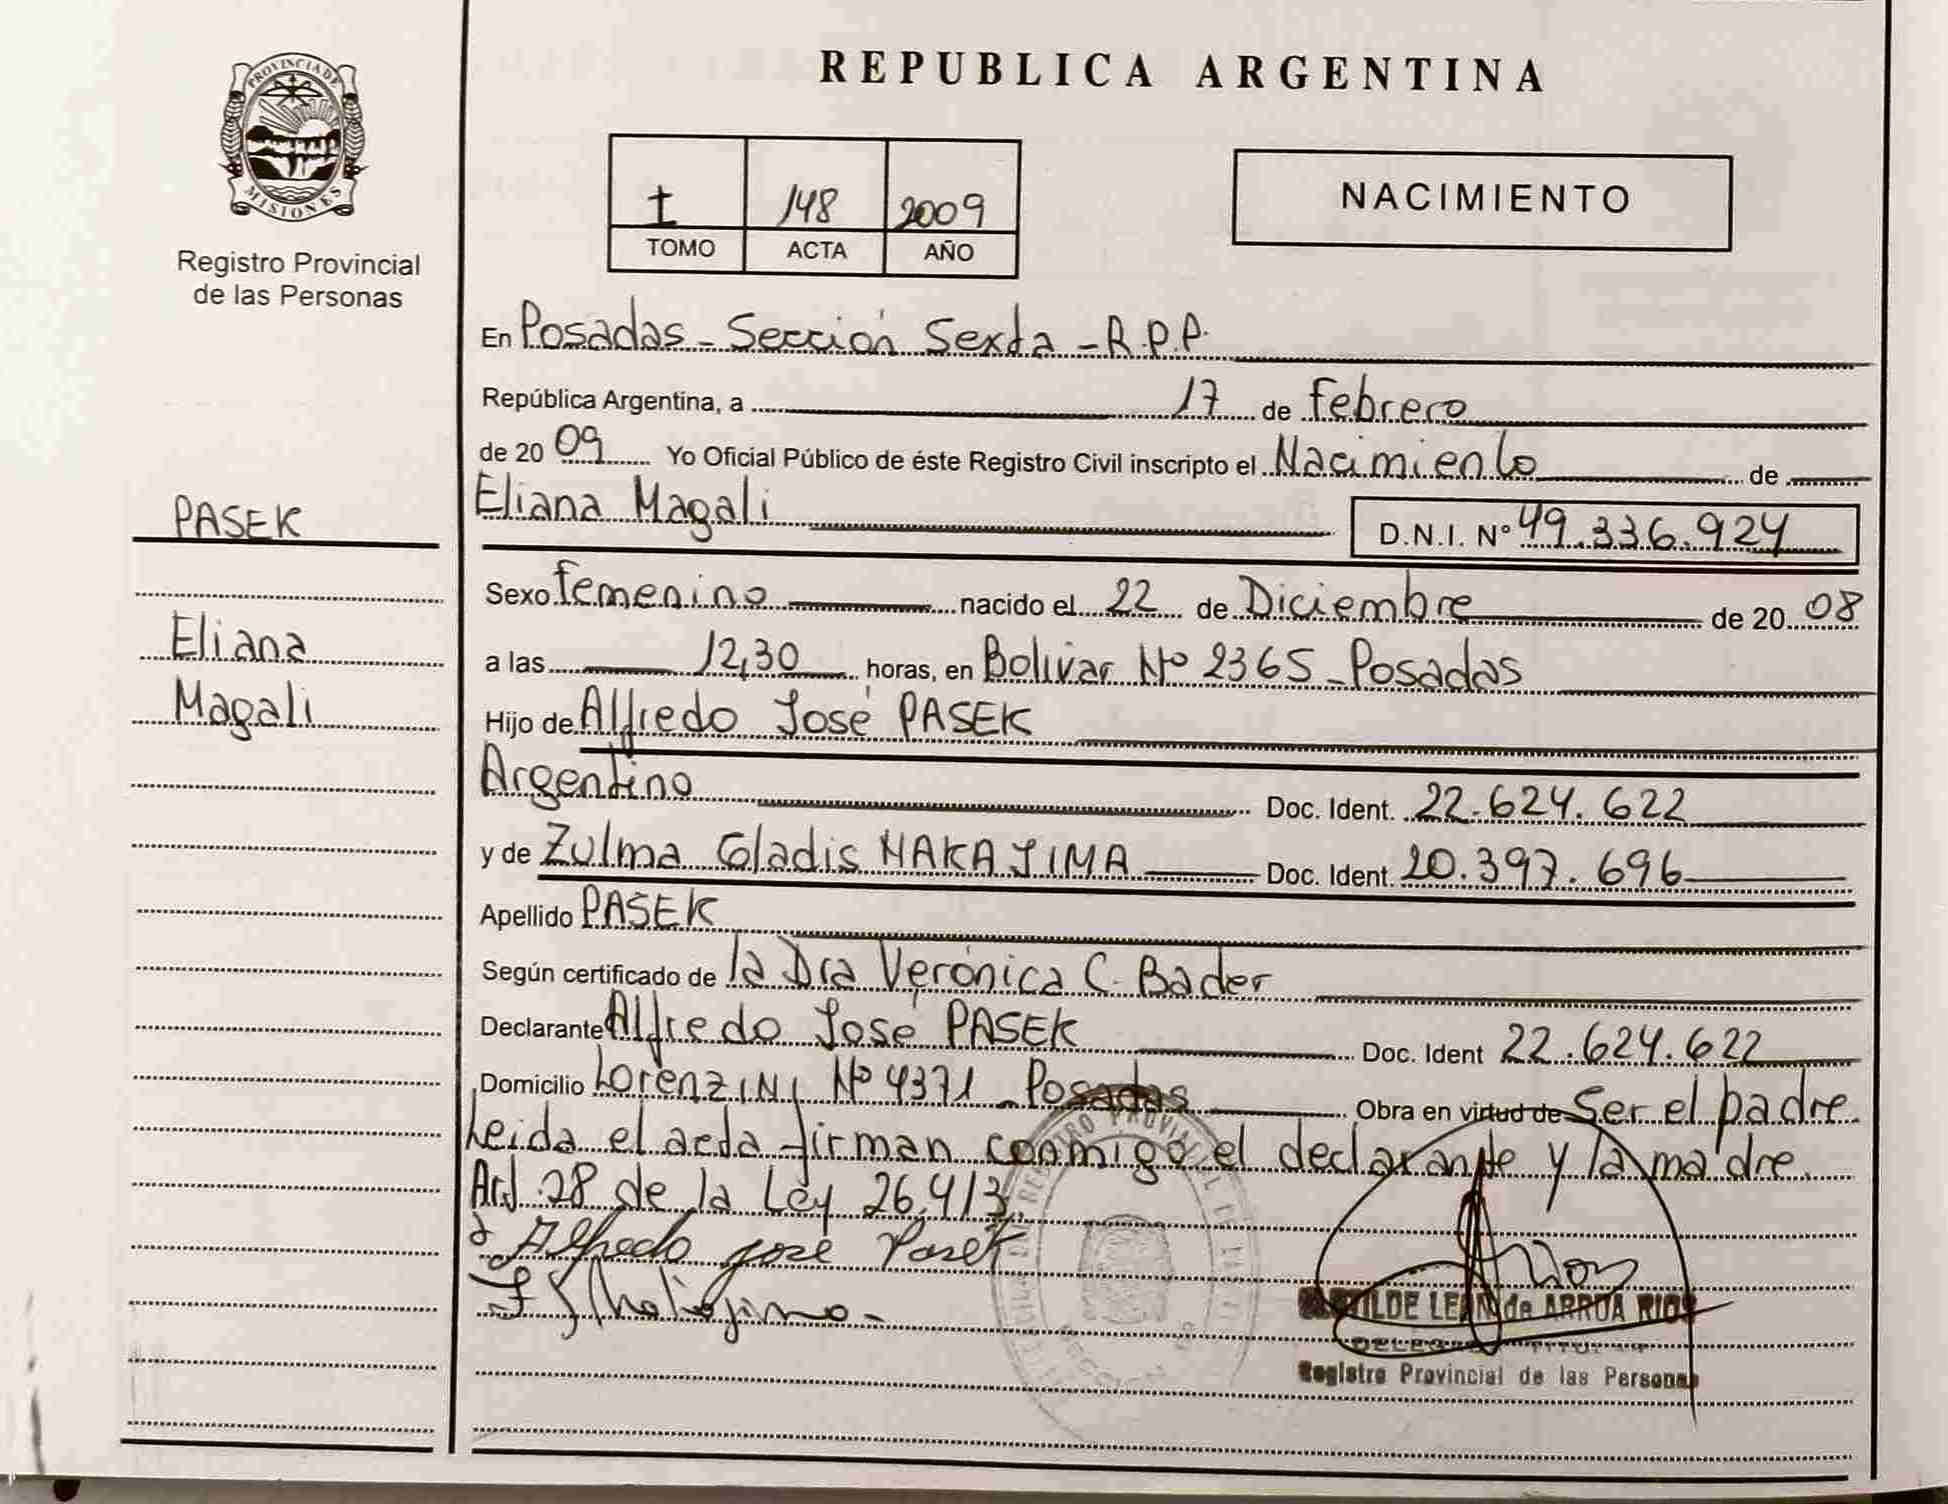 REPUBLICA ARGENTINA
PROVINCIA DE
MISIONES
Registro Provincial
de las Personas
I 148 2009
TOMO ACTA AÑO
NACIMIENTO
En Posadas - Sección Sexta - R.P.P.
República Argentina, a 17 de Febrero
de 2009 Yo Oficial Público de éste Registro Civil inscripto el Nacimiento de
Eliana Magali D.N.I. Nº 49.336.924
PASEK
Eliana
Magali
Sexo Femenino nacido el 22 de Diciembre de 2008
a las 12,30 horas, en Bolivar Nº 2365 - Posadas
Hijo de Alfredo José PASEK
Argentino Doc. Ident. 22.624.622
y de Zulma Gladis NAKAJIMA Doc. Ident. 20.397.696
Apellido PASEK
Según certificado de la Dra Verónica C. Bader
Declarante Alfredo José PASEK Doc. Ident 22.624.622
Domicilio Lorenzini Nº 4371 - Posadas Obra en virtud de Ser el padre
Leida el acta firman conmigo el declarante y la madre.
Art. 28 de la Ley 26.413.
Alfredo José Pasek
LEAN de ARRUA RIOS
Registro Provincial de las Personas